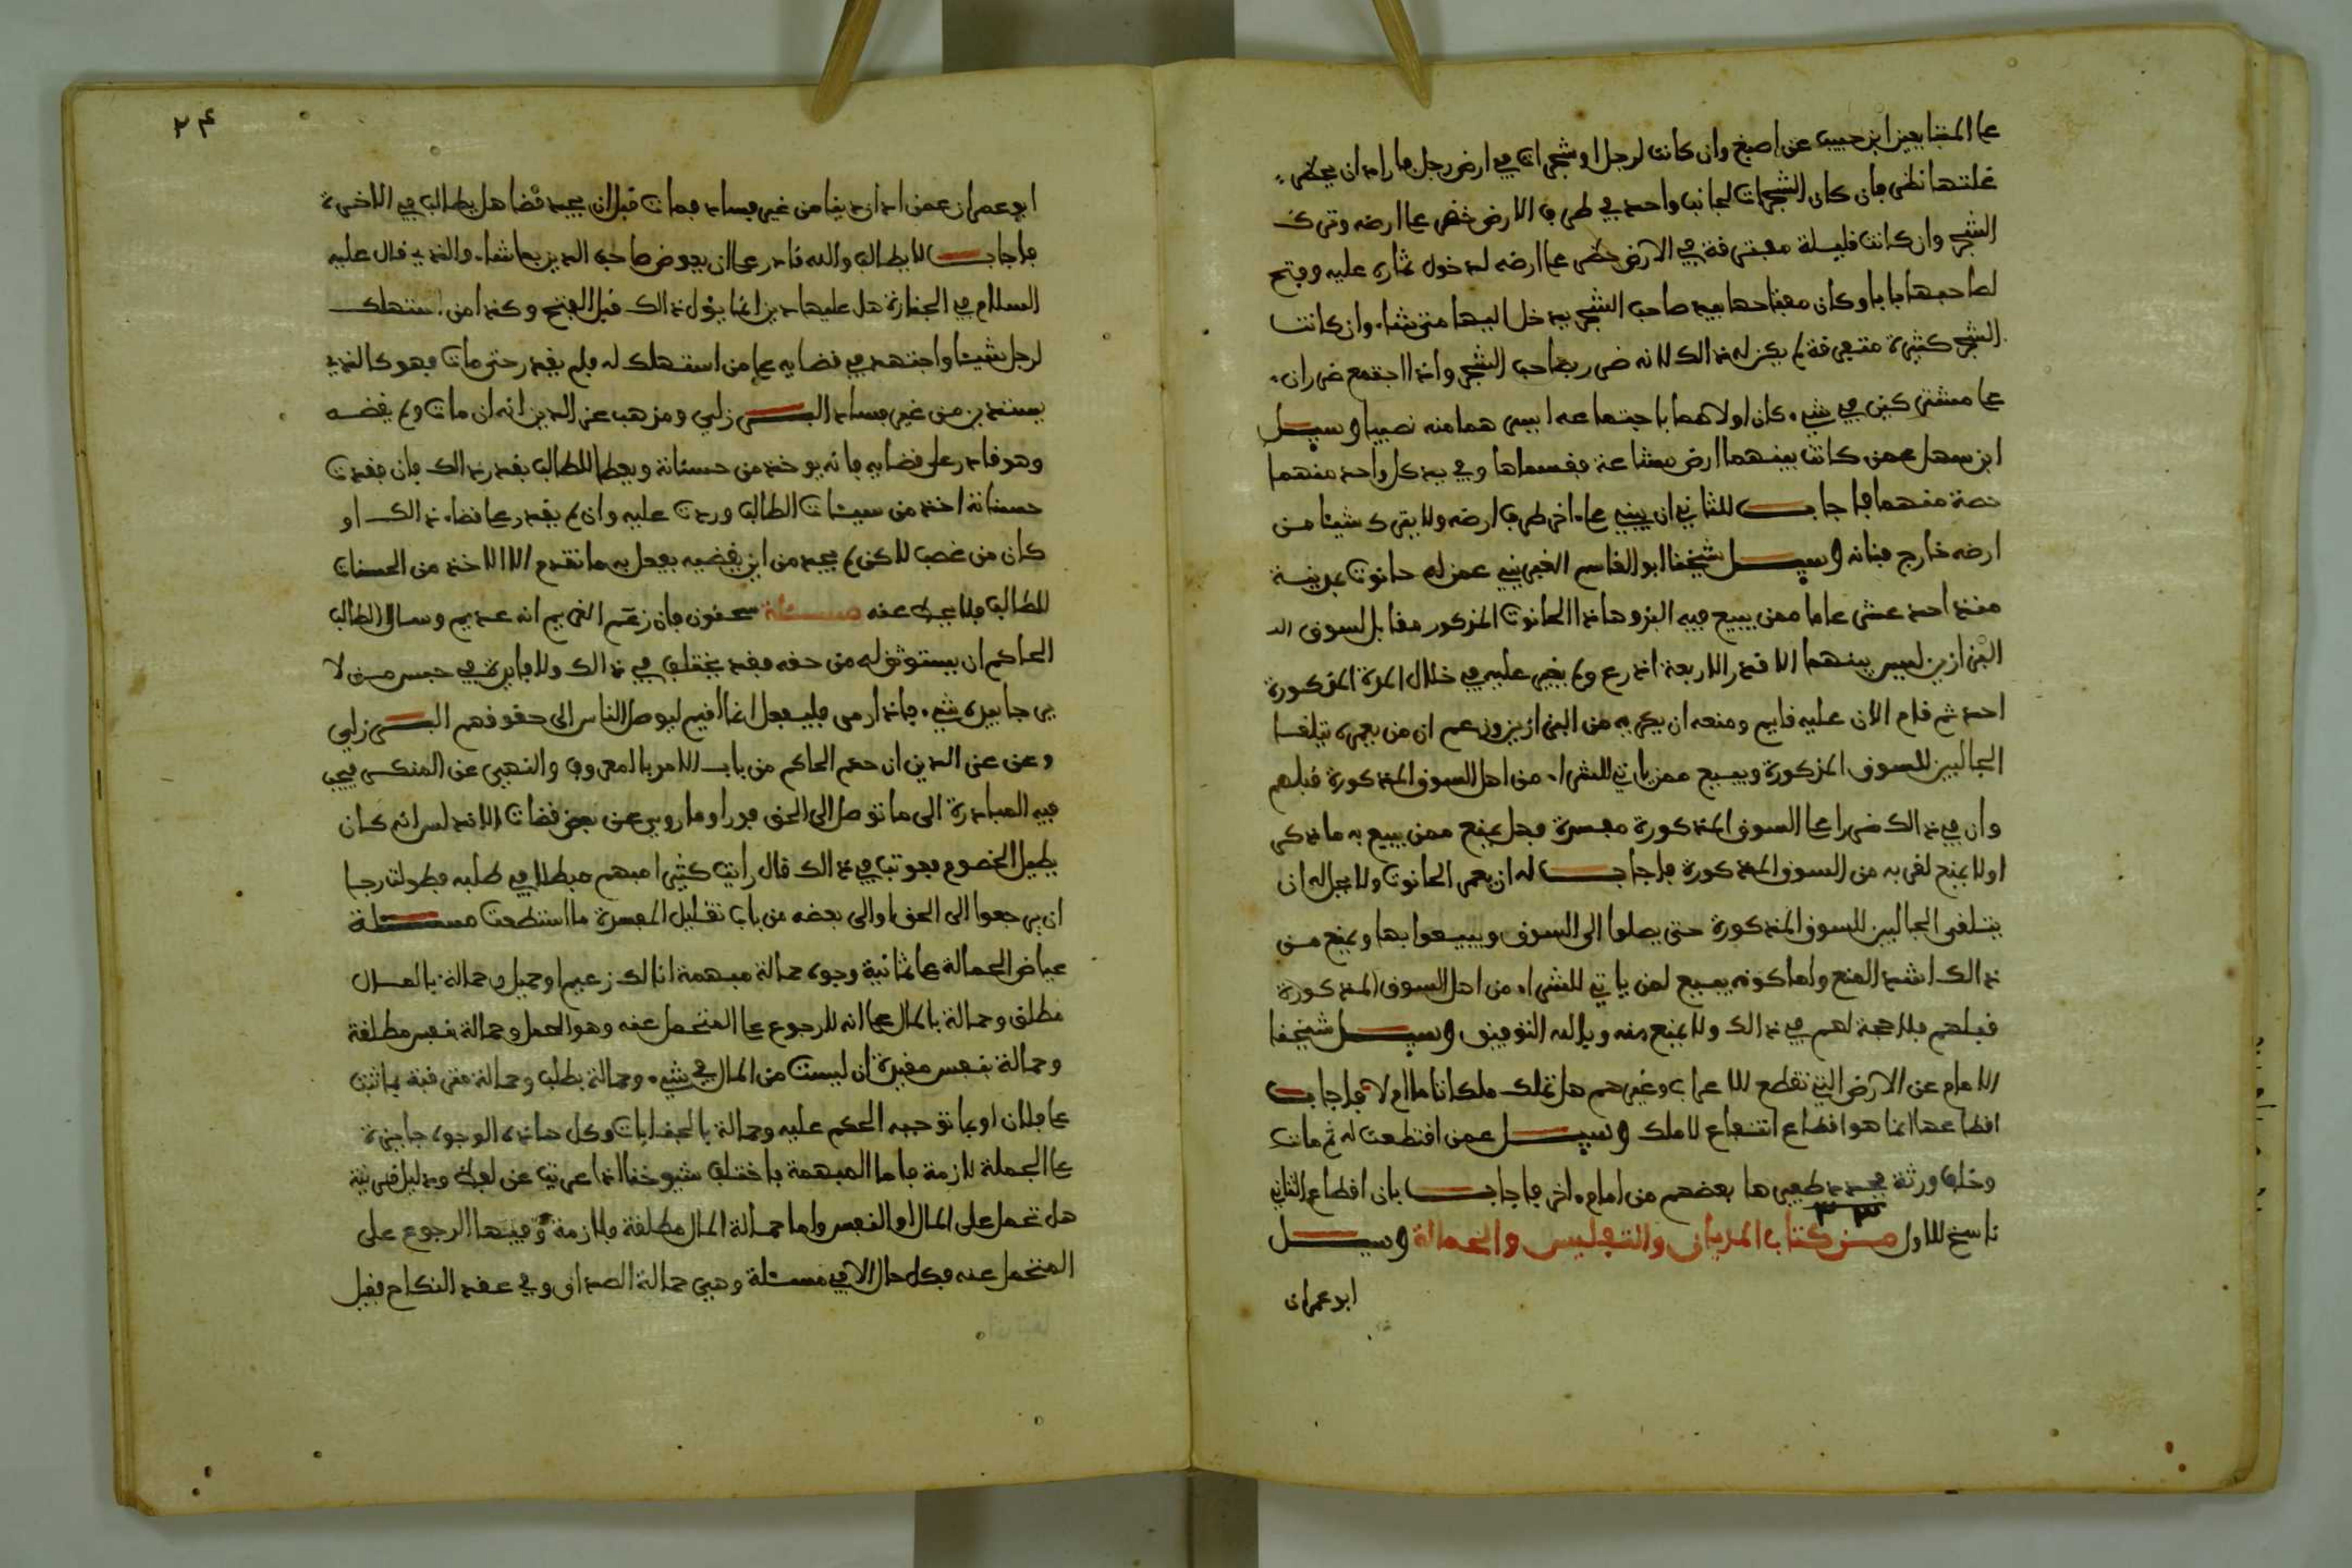 على المتبايعين ابن حبيب عن اصبغ وان كانت لرجل او شجرات في ارض رجل فاراد ان يحظر
غلتها نظر فان كان الشجرات لجانب واحد في طرف الارض حظر على ارضه وترك
الشجر وان كانت قليلة مفترقة في الارض حظر على ارضه لدخول ثماره عليه وفتح
لصاحبها بابا وكان مفتاحها بيد صاحب الشجر يدخل اليها متى شاء وان كانت
الشجر كثيرة متفرقة لم يكن له ذالك لانه ضرر بصاحب الشجر واذا اجتمع ضرران
على مشتركين في شيء كان اولاهما باجتماعه ايسرهما منه نصيبا وسيل
ابن سهل عمن كانت بينهما ارض مشاعة فقسماها وفي يد كل واحد منهما
حصة منهما فاجاب للثاني ان يبني على اخر طرف ارضه ولا يترك شيئا من
ارضه خارج بنائه وسيل شيخنا ابو القاسم الغبريني عمن له حانوت بمدينة
منذ احد عشر عاما ممن يبيع فيه البز وهاذا الحانوت المذكور مقابل لسوق
البزازين ليس بينهما الا قدر الاربعة اذرع ولم يغير عليه في خلال المدة المذكورة
احد ثم قام الان عليه قايم ومنعه ان يكريه من البزازين وزعم ان من يعمره يتلقا
الجالبين للسوق المذكورة ويبيع ممن ياتي للشراء من اهل السوق المذكورة قبلهم
وان في ذالك ضررا على السوق المذكورة مفسدة فهل يمنع ممن يبيع به ما ذكر
او لا يمنع لقربه من السوق المذكورة فاجاب له ان يعمر الحانوت ولا يجوز له ان
يتلقى الجالبين للسوق المذكورة حتى يصلوا الى السوق ويبيعوا بها ويمنع من
ذالك اشد المنع واما كونه يبيع لمن ياتي للشراء من اهل السوق المذكورة
قبلهم فلا حجة لهم في ذالك ولا يمنع منه وبالله التوفيق وسيل شيخنا
الامام عن الارض التي تقطع للاعراب وغيرهم هل تملك ملكا تاما ام لا فاجاب
اقطاعها انما هو اقطاع انتفاع لا ملك وسيل عمن اقتطعت له ثم مات
وخلف ورثة فجدد ظهيرها بعضهم من امام اخر فاجاب بان اقطاع الثاني
ناسخ للاول من كتاب المديان والتفليس والحمالة وسيل
ابو عمران
٢٤
ابو عمران عمن ادان دينا من غير فساد فمات قبل ان يجد قضا هل يطالب في الاخرة
فاجاب لا يطالب والله قادر على ان يعوض صاحب الدين بما شاء والذي قال عليه
السلام في الجنازة هل عليها دين انما يؤل ذالك قبل الفتح وكذا من استهلك
لرجل شيئا واجتهد في قضايه على من استهلك له فلم يقدر حتى مات فهو كالذي
يستدين من غير فساد البرزلي ومذهب عز الدين انه ان مات ولم يقضه
وهو قادر على قضايه فانه يوخذ من حسناته ويعطا للطالب بقدر ذالك فان فقدت
حسناته اخذ من سيئات الطالب وردت عليه وان لم يقدر على قضاء ذالك او
كان من غصب لاكن لم يجد من اين يقضيه يفعل به ما تقدم الا الاخذ من الحسنات
للطالب فلا يحط عنه مسئلة سحنون فان زعم الغريم انه عديم وسال الطالب
الحاكم ان يستوثق له من حقه فقد يختلف في ذالك ولا فايدة في حبس من لا
يرجا بيده شيء فاذا رمى فليفعل انما اقيم ليوصل الناس الى حقوقهم البرزلي
وعن عز الدين ان حكم الحاكم من باب الامر بالمعروف والنهي عن المنكر فيجب
فيه المبادرة الى ما توصل الى الحق فورا وما روي عن بعض قضات الاندلس انه كان
يطيل الخصوم فعوتب في ذالك قال رايت كثيرا منهم مبطلا في طلبه فطولت رجا
ان يرجعوا الى الحق او الى بعضه من باب تقليل المفسدة ما استطعت مسئلة
عياض الحمالة على ثمانية وجوه حمالة مبهمة انا لك زعيم او حميل وحمالة بالمال
مطلق وحمالة بالمال على انه لا رجوع على المتحمل عنه وهو الحمل وحمالة بنفس مطلقة
وحمالة بنفس مقيدة ان ليست من المال في شيء وحمالة بطلب وحمالة مترقبة بما ثبت
على فلان او بما توجبه الحكم عليه وحمالة بالجنايات وكل هاذه الوجوه جايزة
على الجملة لازمة فاما المبهمة فاختلف شيوخنا اذا عريت عن لفظ ودليل قرينة
هل تحمل على المال او النفس واما حمالة المال مطلقة فلازمة وفيها الرجوع على
المتحمل عنه بكل حال الا في مسئلة وهي حمالة الصداق وفي عقد النكاح فقيل